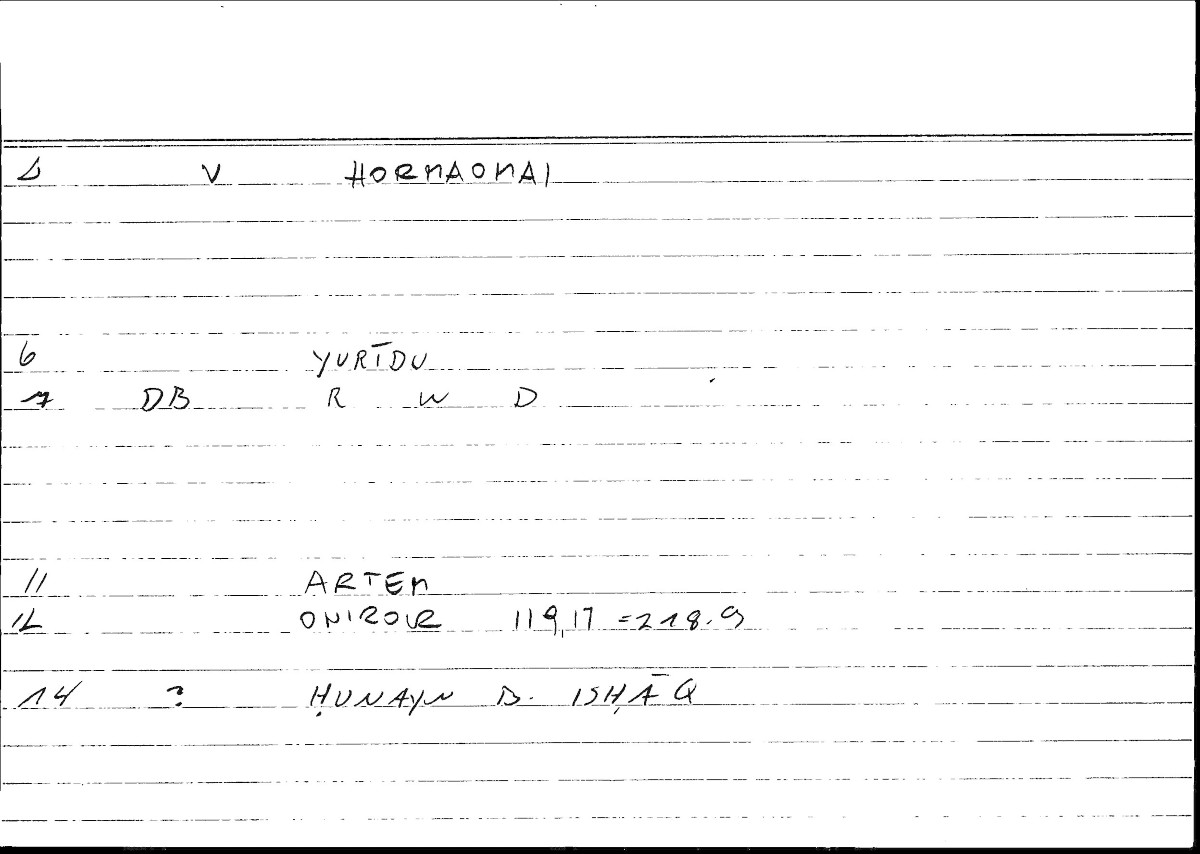 1 V HORMAOMAI
6 YURĪDU
7 DB R W D
11 ARTEM
12 ONIROCR 119,17 =218.9
14 ? ḤUNAYN B. ISḤĀQ